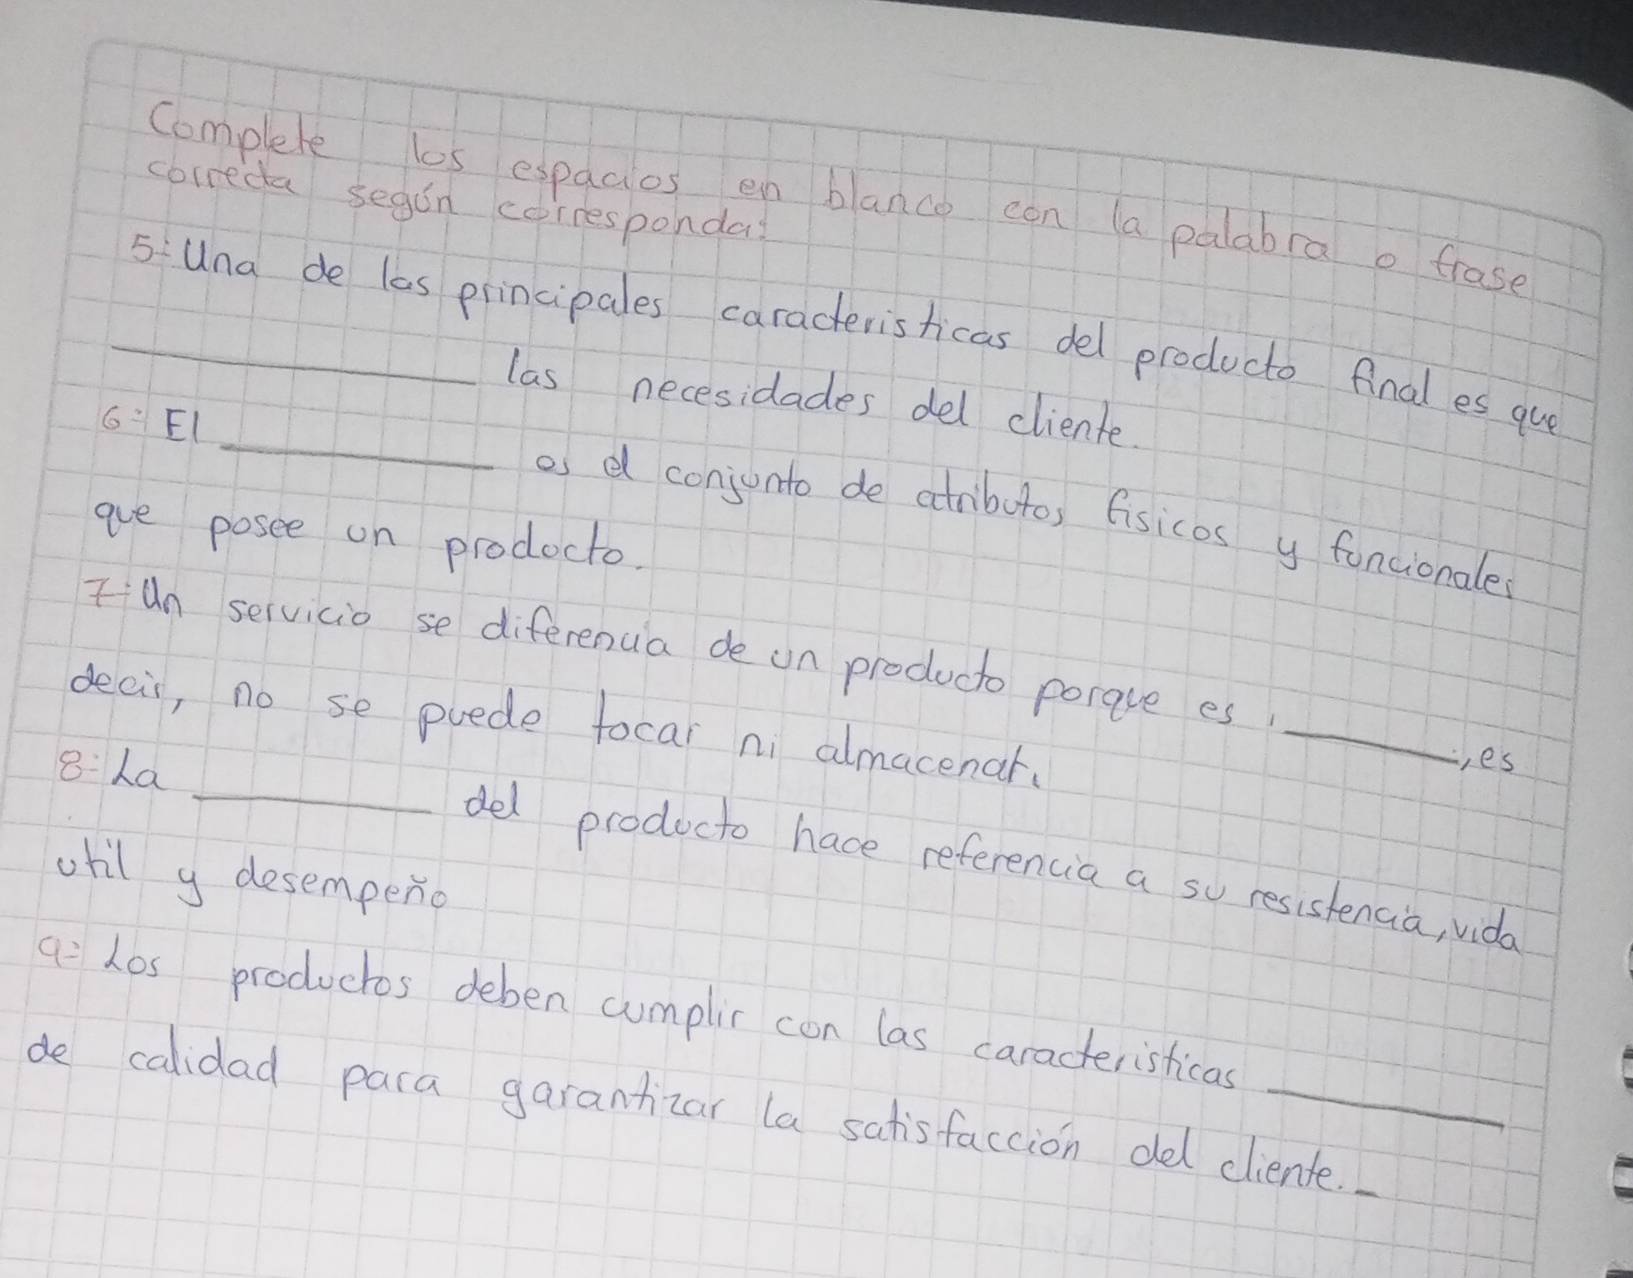 Complete los espacios en blanco con la palabra o frase
correcta según corresponda:
5- Una de las principales caracteristicas del producto final es que
____________ las necesidades del cliente.
6- El ____________ es el conjunto de atributos fisicos y funcionales
que posee un producto.
7- Un servicio se diferencia de un producto porque es, ________, es
decir, no se puede tocar ni almacenar.
8- La __________ del producto hace referencia a su resistencia, vida
util y desempeño
9- Los productos deben cumplir con las caracteristicas __________
de calidad para garantizar la satisfacción del cliente.-